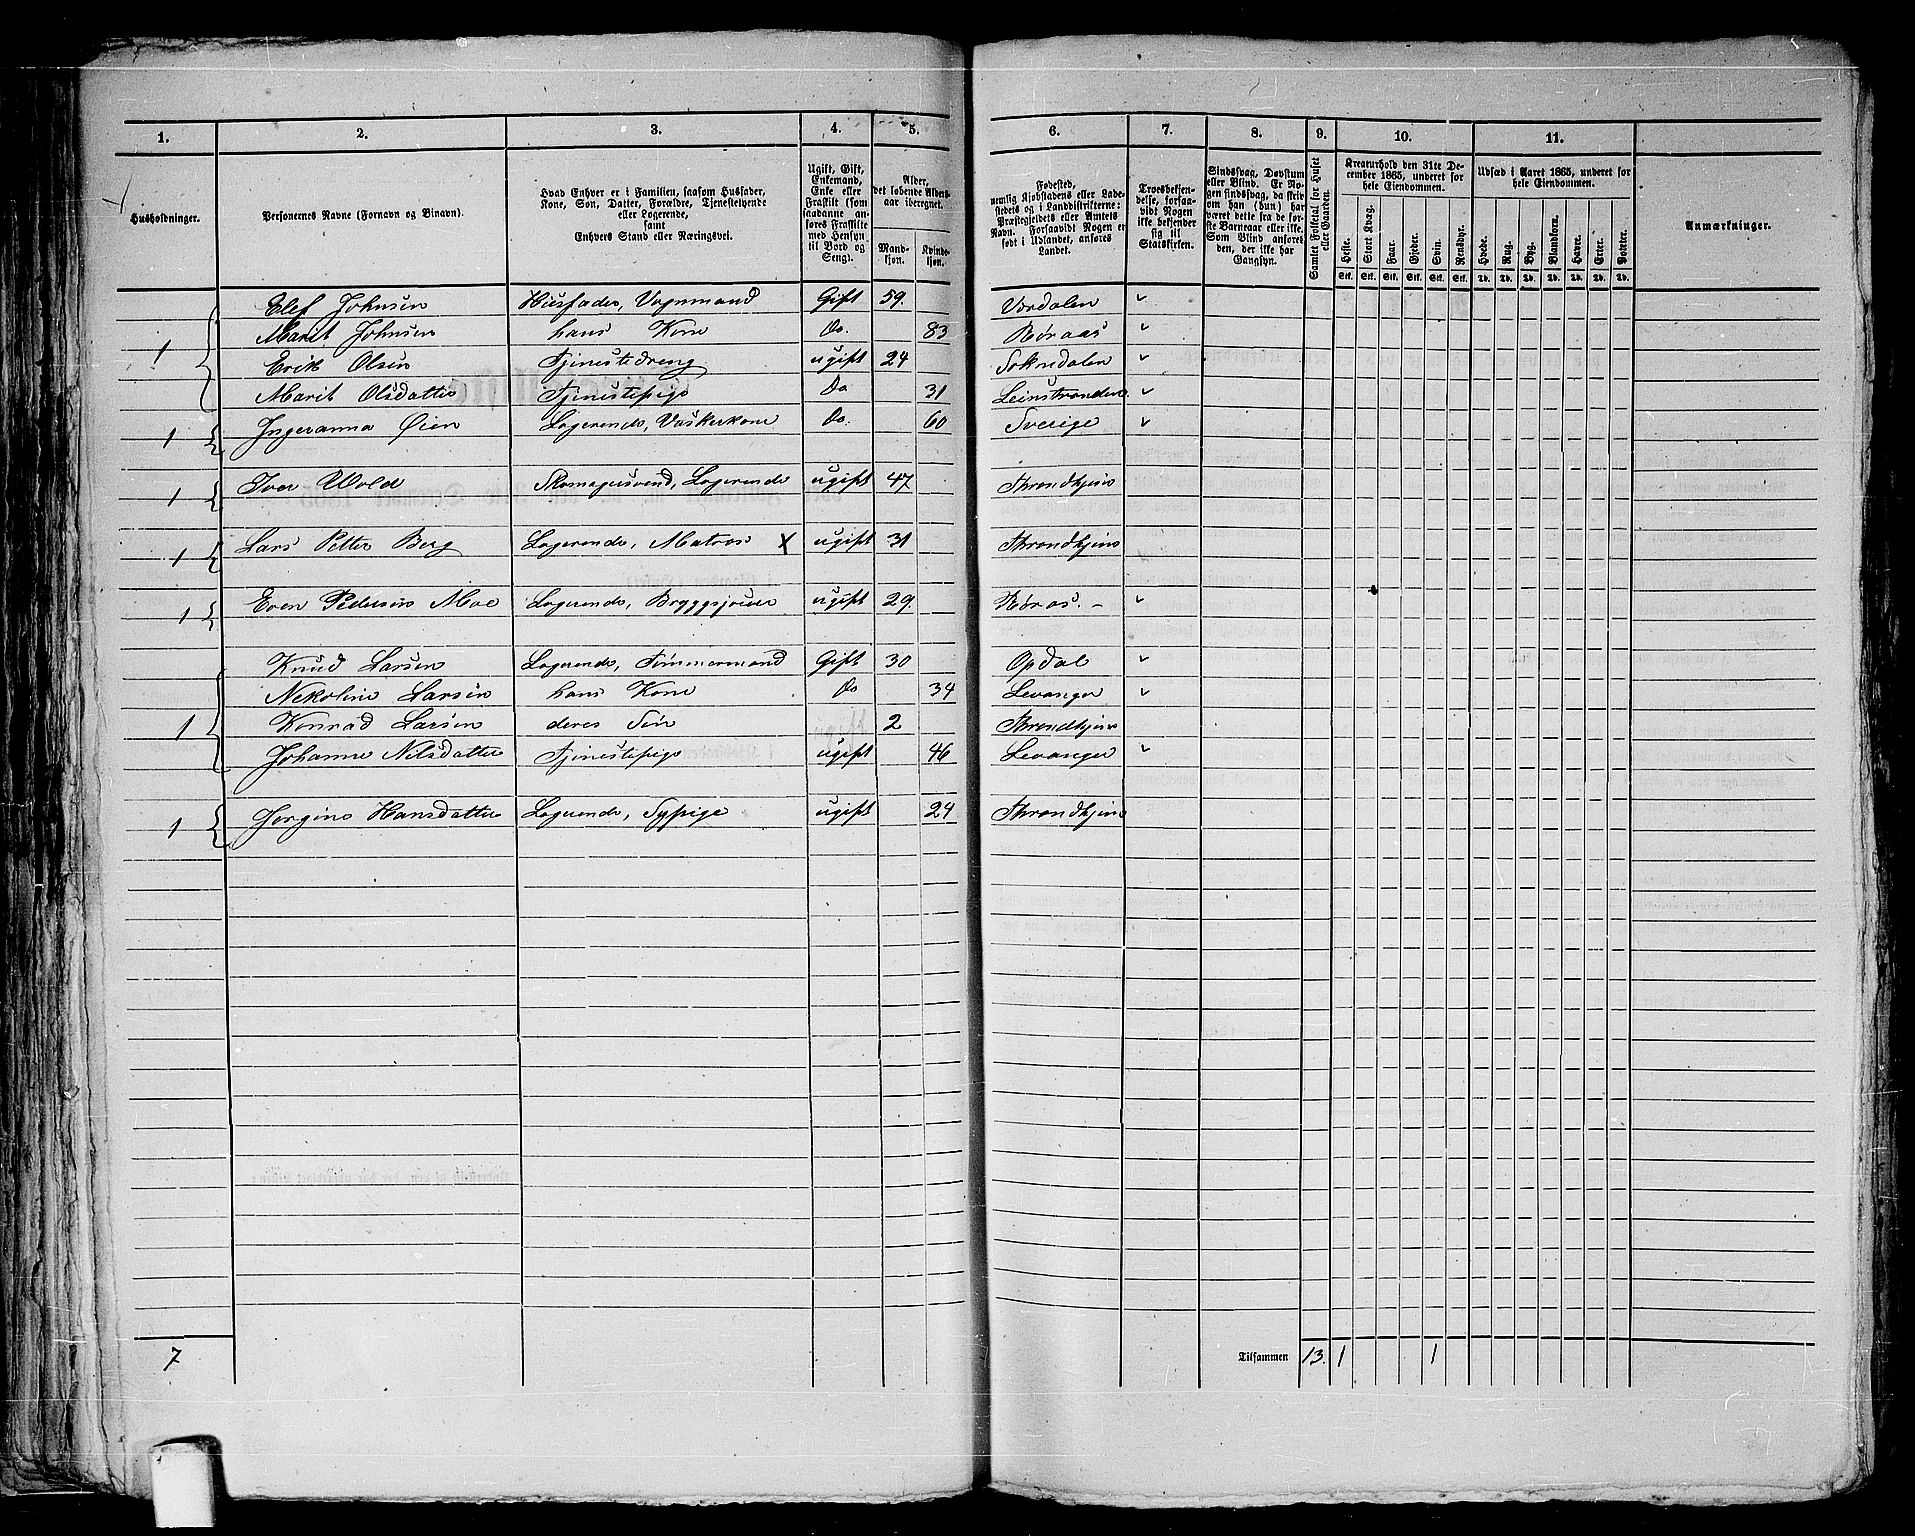 1. 2. 3. 4. 5. 6. 7. 8. 9. 10. 11.
Husholdninger.
Personernes Navne (Fornavn og Binavn).
Hvad Enhver er i Familien, saasom Husfader, Kone, Søn, Datter, Forældre, Tjenestetyende eller Logerende,
samt
Enhvers Stand eller Næringsvei.
Ugift, Gift, Enkemand, Enke eller Fraskilt (som saadanne anføres Fraskilte med Hensyn til Bord og Seng).
Alder, det løbende Alders- aar iberegnet.
Mand- kjøn. Kvinde- kjøn.
Fødested, nemlig Kjøbstadens eller Ladestedets og i Landdistrikterne: Præstegjeldets eller Amtets Navn. Forsaavidt Nogen er født i Udlandet, anføres Landet.
Troesbekjendelse, forsaavidt Nogen ikke bekjender sig til Statskirken.
Sindssvag, Døvstum eller Blind. Er Nogen sindssvag, da skrives om han (hun) har været dette fra de første Barneaar eller ikke. Som Blind anføres den, der ikke har Gangsyn.
Samlet Folketal for Huset eller Gaarden.
Kreaturhold den 31te December 1865, underet for hele Eiendommen.
Heste. Stort Kvæg. Faar. Gjeder. Svin. Rensdyr.
Stk. Stk. Stk. Stk. Stk. Stk.
Udsæd i Aaret 1865, underet for hele Eiendommen.
Hvede. Rug. Byg. Blandkorn. Havre. Erter. Poteter.
Td. Td. Td. Td. Td. Td. Td.
Anmærkninger.
Elef Johnsen Husfader, Vognmand Gift 59. Værdalen
1 Marit Johnsen hans Kone Do. 83 Røraas
Erik Olsen Tjenestedreng ugift 24 Soknedalen
Marit Olsdatter Tjenestepige Do 31 Leinstranden
1 Ingeranna Øien Logerende, Vaskerkone Do. 60 Sverige
1 Iver Wold Skomagersvend, Logerende ugift 47 Throndhjem
1 Lars Petter Berg Logerende, Matros X ugift 31 Throndhjem
1 Even Pedersen Moe Logerende, Bryggsjouer ugift 29. Røros. –
Knud Larsen Logerende, Tømmermand Gift 30 Opdal
Nekoline Larsen hans Kone Do 34 Levanger
1 Konrad Larsen deres Søn Ugift 2 Throndhjem
Johanne Nilsdatter Tjenestepige ugift 46 Levanger
1 Jørgine Hansdatter Logerende, Sypige ugift 24 Throndhjem
7 Tilsammen 13. 1 1